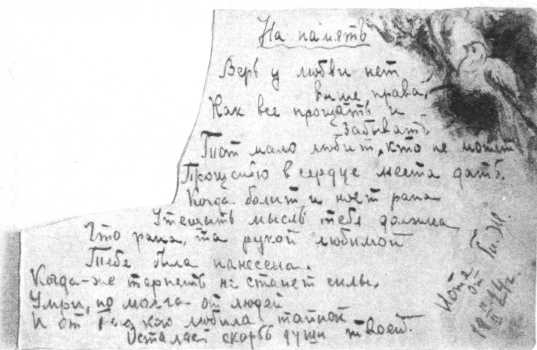 На память
Верь у любви нет
выше права,
Как все прощать и
забывать
Тот мало любит, кто не может
Прощенью в сердце места дать.
Когда болит и ноет рана
Утешить мысль тебя должна
Что рана, та рукой любимой
Тебе была нанесена.
Когда-же терпеть не станет силы
Умри, но молча от людей
И от того, кого любила тайной
Остался скорбь души твоей.
Котя
от
24г.